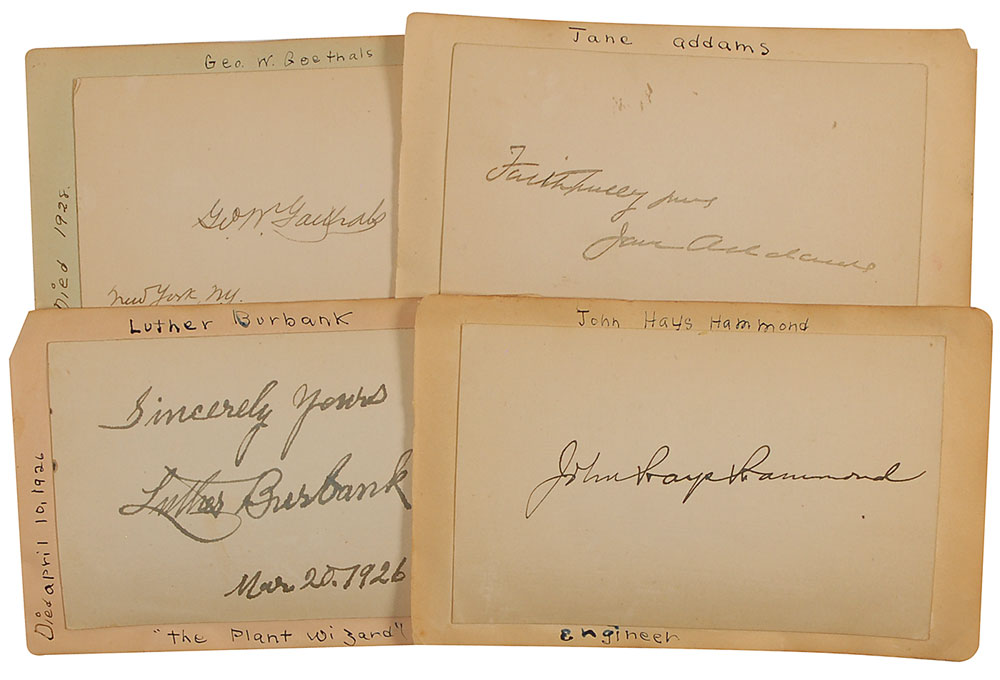 Geo. W. Goethals
Geo W. Goethals
New York, NY.
Died 1928.
Jane Addams
Faithfully yours
Jane Addams
Luther Burbank
Sincerely Yours
Luther Burbank
Mar. 20. 1926
Died april 10, 1926
"the Plant Wizard"
John Hays Hammond
John Hays Hammond
Engineer